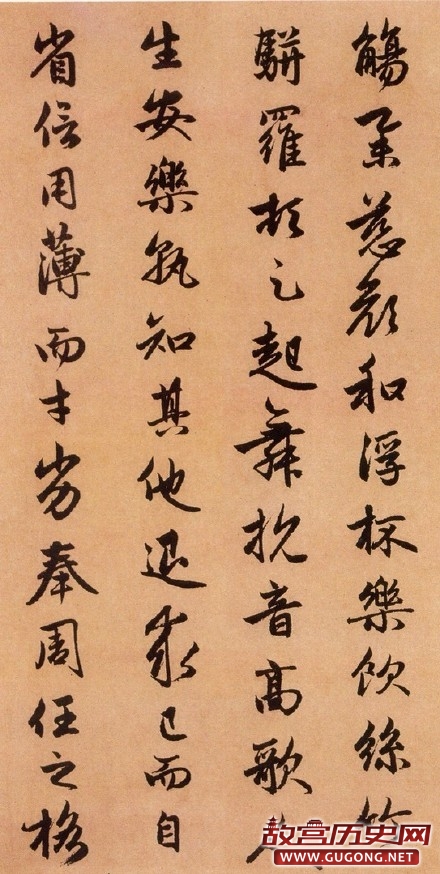 觴舉慈顏和浮杯樂飲絲竹
駢羅頓足起舞抗音高歌人
生安樂孰知其他退求己而自
省信用薄而才劣奉周任之格
故宫历史网
WWW.GUGONG.NET